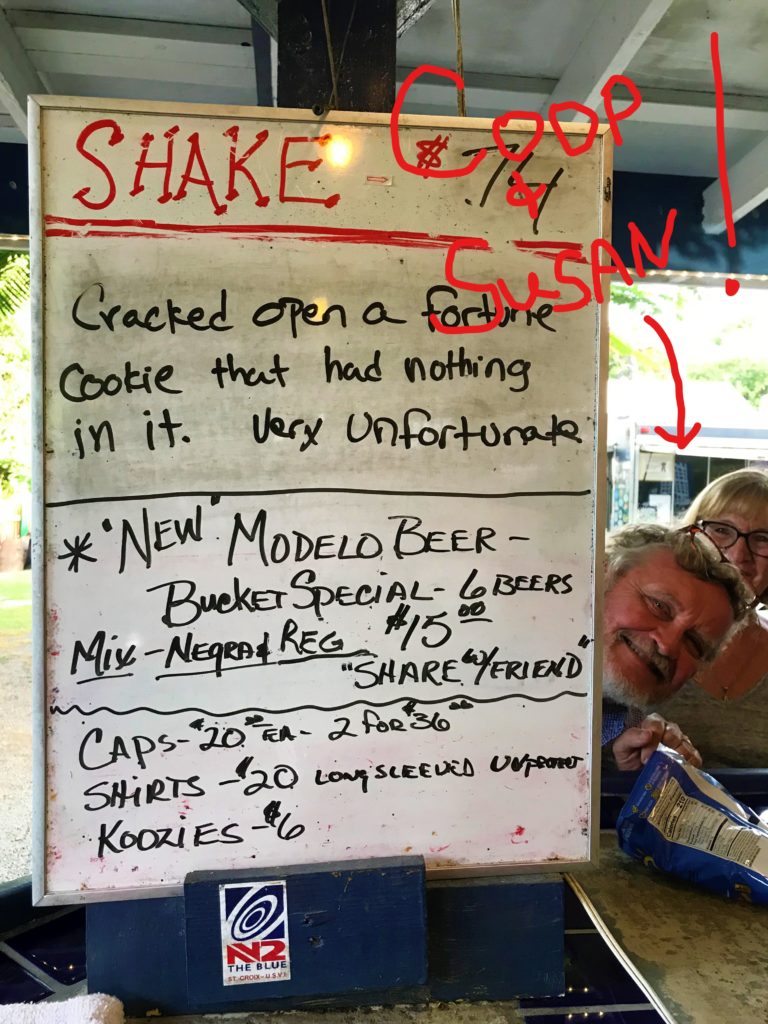 SHAKE - $.74
COOP
&
SUSAN!
Cracked open a fortune
cookie that had nothing
in it. Very Unfortunate
* "NEW" MODELO BEER -
BUCKET SPECIAL - 6 BEERS
MIX - NEGRA & REG $15.00
"SHARE W/FRIEND"
CAPS - $20.00 EA - 2 FOR $36.00
SHIRTS - $20 LONG SLEEVED
KOOZIES - $6
N2
THE BLUE
ST. CROIX - U.S.V.I.